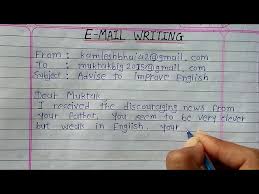 E-MAIL WRITING
From : kamleshbhai a2@gmail.com
To : muktakbig2015@gmail.com
Subject : Advise to Improve English
Dear Muktak
I received the discouraging news from
your father. You seem to be very clever
but weak in English. Your